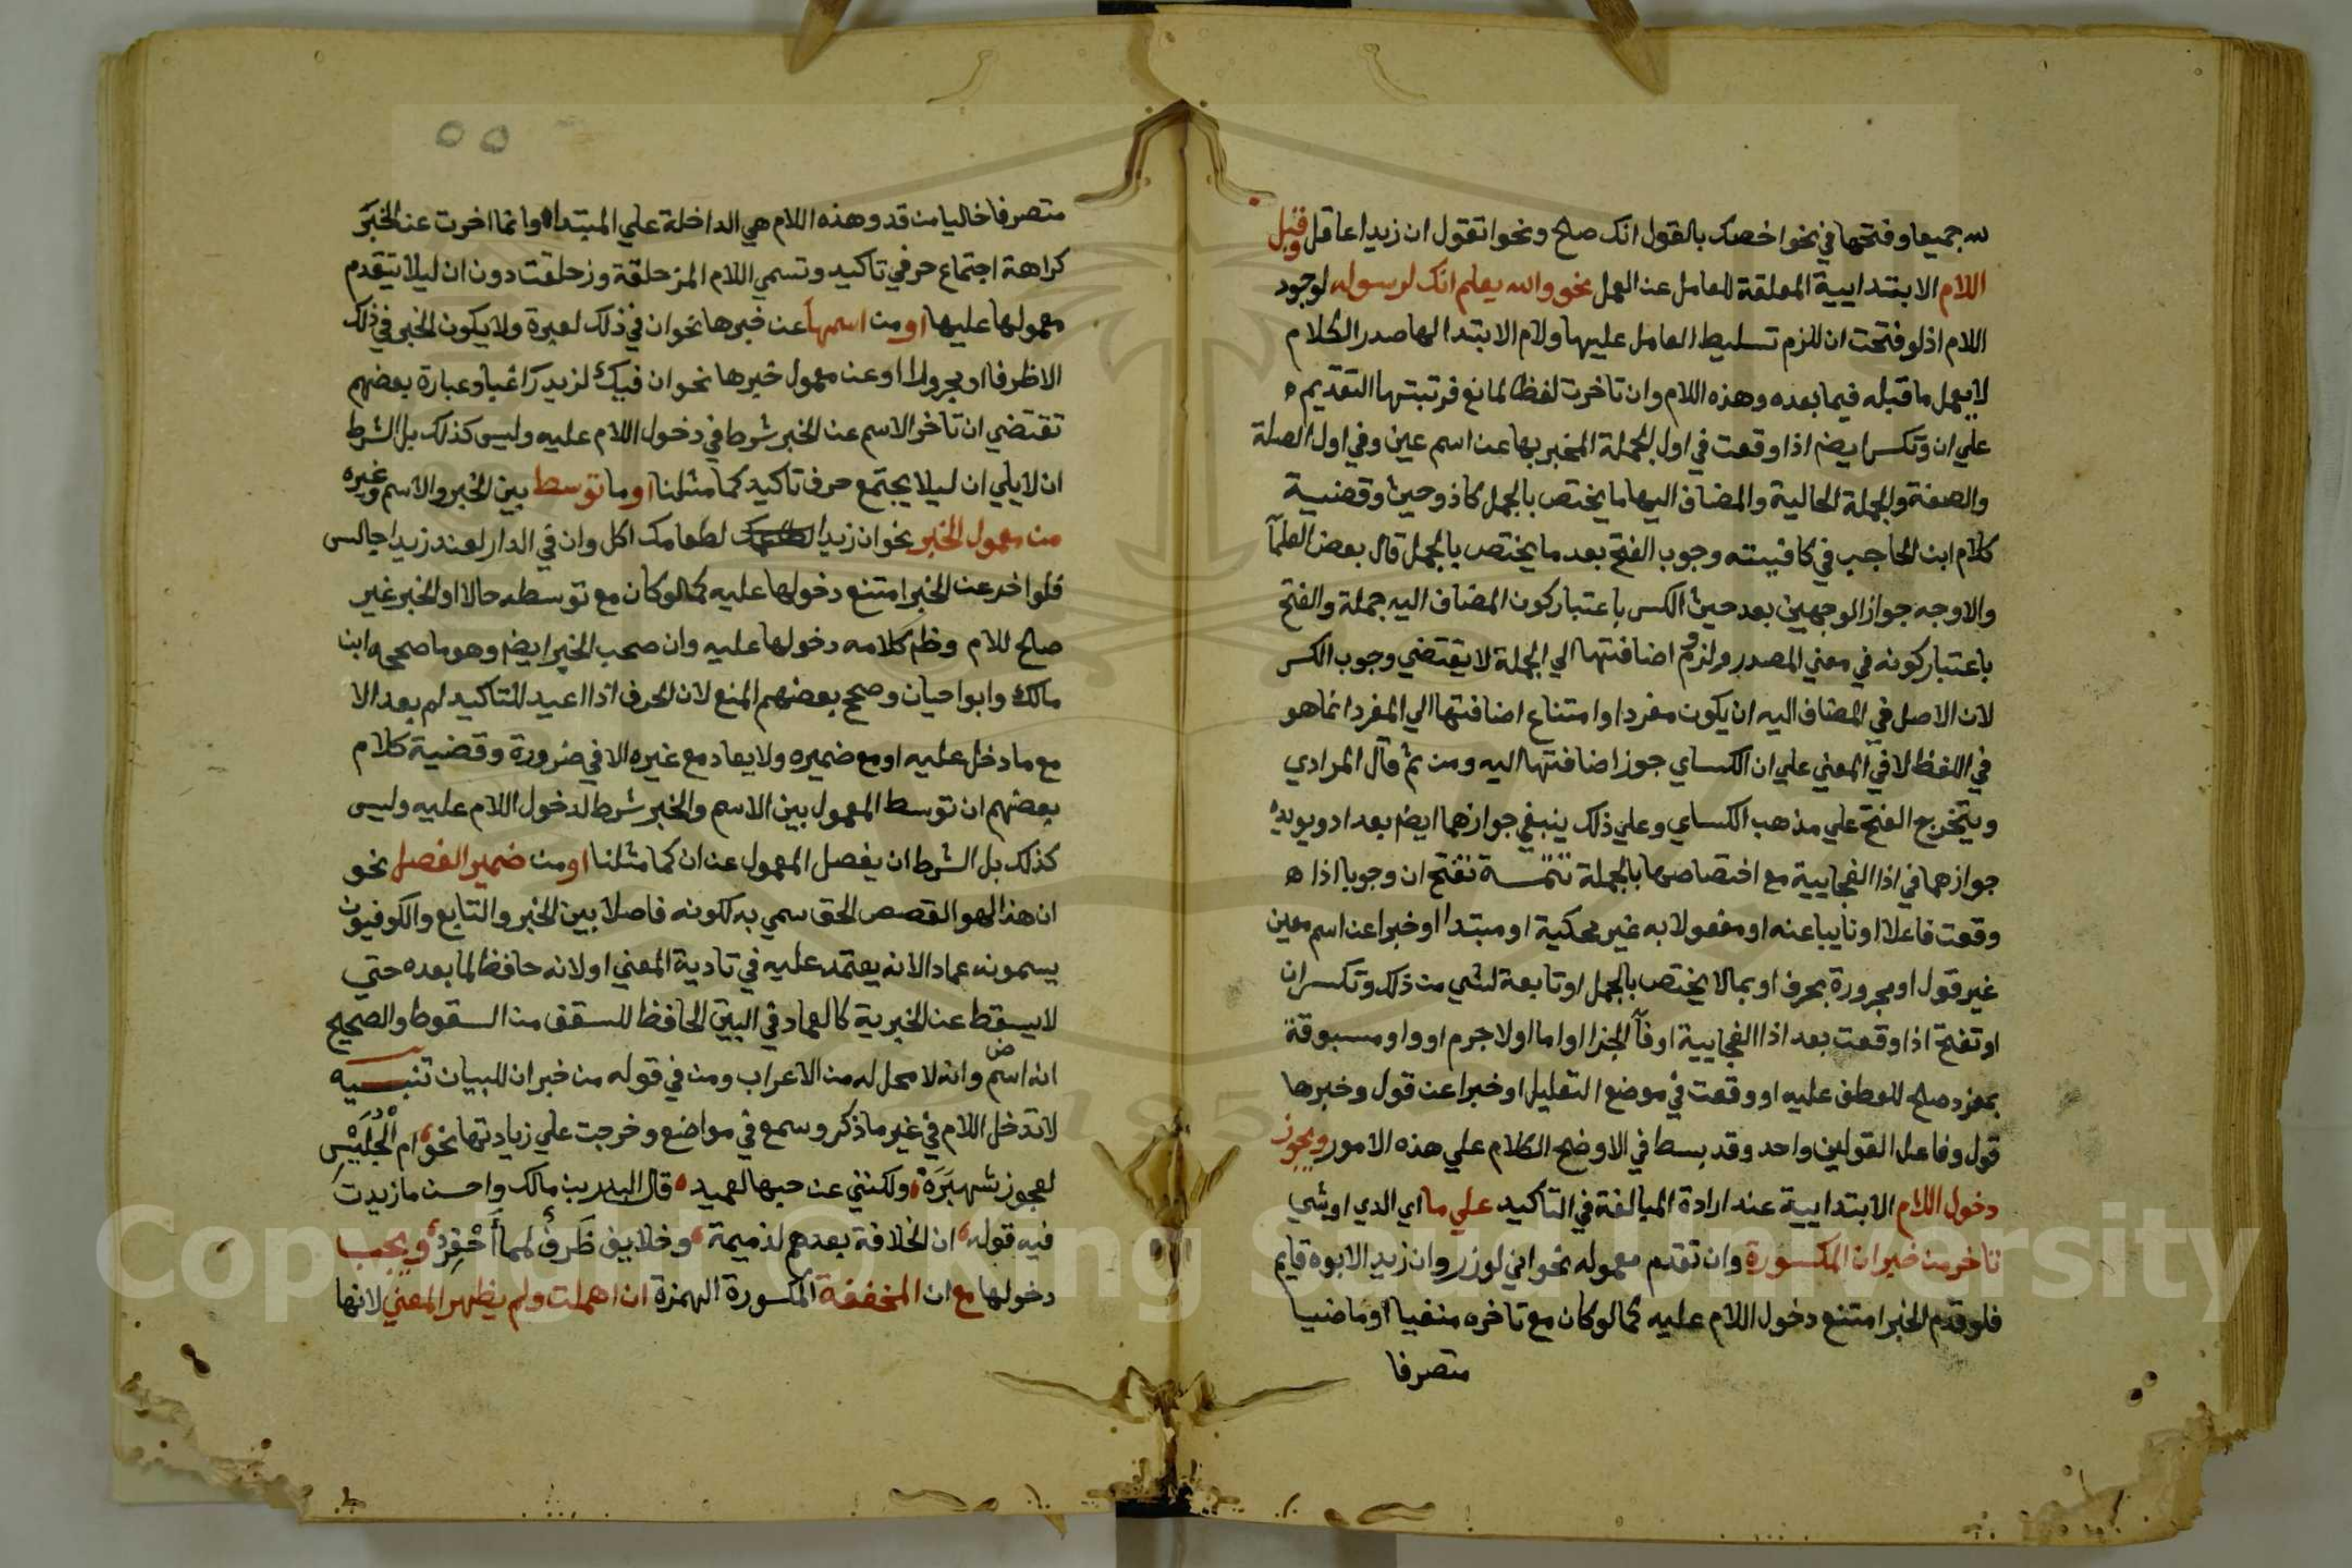 لله جميعا وفتحها في نحو اخصك بالقول انك صالح ونحو اتقول ان زيدا عاقل وقبل
اللام الابتدايية المعلقة للعامل عن العمل نحو والله يعلم انك لرسوله لوجود
اللام اذ لو فتحت ان للزم تسليط العامل عليها ولام الابتدا لها صدر الكلام
لا يعمل ما قبله فيما بعده وهذه اللام وان تاخرت لفظا لمانع فرتبتها التقديم ه
علي ان وتكسر ايضم اذا وقعت في اول الجملة المخبر بها عن اسم عين وفي اول الصلة
والصفة والجملة الحالية والمضاف اليها ما يختص بالجمل كاذ وحيث وقضية
كلام ابن الحاجب في كافيته وجوب الفتح بعد ما يختص بالجمل قال بعض العلمآ
والاوجه جواز الوجهين بعد حيث الكسر باعتبار كون المضاف اليه جملة والفتح
باعتبار كونه في معني المصدر ولزوم اضافتها الي الجملة لا يقتضي وجوب الكسر
لان الاصل في المضاف اليه ان يكون مفردا وامتناع اضافتها الي المفرد انما هو
في اللفظ لا في المعني علي ان الكساي جوز اضافتها اليه ومن ثم قال المرادي
ويتخرج الفتح علي مذهب الكساي وعلي ذلك ينبغي جوازهما ايضم بعد اذ ويويده
جوازهما في اذا الفجايية مع اختصاصها بالجملة تتمسة تفتح ان وجوبا اذا ه
وقعت فاعلا او نايبا عنه او مفعولا به غير محكية او مبتدا او خبرا عن اسم معين
غير قول او مجرورة بحرف او بما لا يختص بالجمل او تابعة لشي من ذلك وتكسر ان
او تفتح اذا وقعت بعد اذا الفجايية او فآ الجزا او اما او لا جرم او واو مسبوقة
بمفرد صالح للعطف عليه او وقعت في موضع التعليل او خبرا عن قول وخبرها
قول وفاعل القولين واحد وقد بسط في الاوضح الكلام علي هذه الامور ويجوز
دخول اللام الابتدايية عند ارادة المبالغة في التاكيد علي ما اي الدي او شي
تاخر من خبر ان المكسورة وان تقدم معموله نحو اني لوزر وان زيد الابوه قايم
فلو قدم الخبر امتنع دخول اللام عليه كما لو كان مع تاخره منفيا او ماضيا
متصرفا
متصرفا خاليا من قد وهذه اللام هي الداخلة علي المبتدا وانما اخرت عن الخبر
كراهة اجتماع حرفي تاكيد وتسمي اللام المزحلقة وزحلقت دون ان ليلا يتقدم
معمولها عليها او من اسمها عن خبرها نحو ان في ذلك لعبرة ولا يكون الخبر في ذلك
الا ظرفا او مجرورا او عن معمول خبرها نحو ان فيك لزيد راغبا وعبارة بعضهم
تقتضي ان تاخر الاسم عن الخبر شرط في دخول اللام عليه وليس كذلك بل الشرط
ان لا يلي ان ليلا يجتمع حرف تاكيد كما مثلنا او ما توسط بين الخبر والاسم وغيره
من معمول الخبر نحو ان زيدا لطعامك اكل وان في الدار لعند زيدا جالس
فلو اخر عن الخبر امتنع دخولها عليه كما لو كان مع توسطه حالا او الخبر غير
صالح للام وظم كلامه دخولها عليه وان صحب الخبر ايضم وهو ما صححه ابن
مالك وابوا حيان وصحح بعضهم المنع لان الحرف اذا اعيد للتاكيد لم يعد الا
مع ما دخل عليه او مع ضميره ولا يعاد مع غيره الا في ضرورة وقضية كلام
بعضهم ان توسط المعمول بين الاسم والخبر شرط لدخول اللام عليه وليس
كذلك بل الشرط ان يفصل المعمول عن ان كما مثلنا او من ضمير الفصل نحو
ان هذا لهو القصص الحق سمي به لكونه فاصلا بين الخبر والتابع والكوفيون
يسمونه عماد الانه يعتمد عليه في تادية المعني او لانه حافظ لما بعده حتي
لا يسقط عن الخبرية كالعماد في البيت الحافظ للسقف من السقوط والصحيح
انه اسم وانه لا محل له من الاعراب ومن في قوله من خبر ان للبيان تنبيه
لا تدخل اللام في غير ما ذكر وسمع في مواضع وخرجت علي زيادتها نحو ام الحليس
لعجوز شهبره ولكنني عن حبها لعميد قال البدر بن مالك واحسن ما زيدت
فيه قوله ان الخلافة بعدهم لذميمة وخلايف ظرف لمما احقر ويجب
دخولها مع ان المخففة المكسورة الهمزة ان اهملت ولم يظهر المعني لانها
Copyright © King Saud University
1957